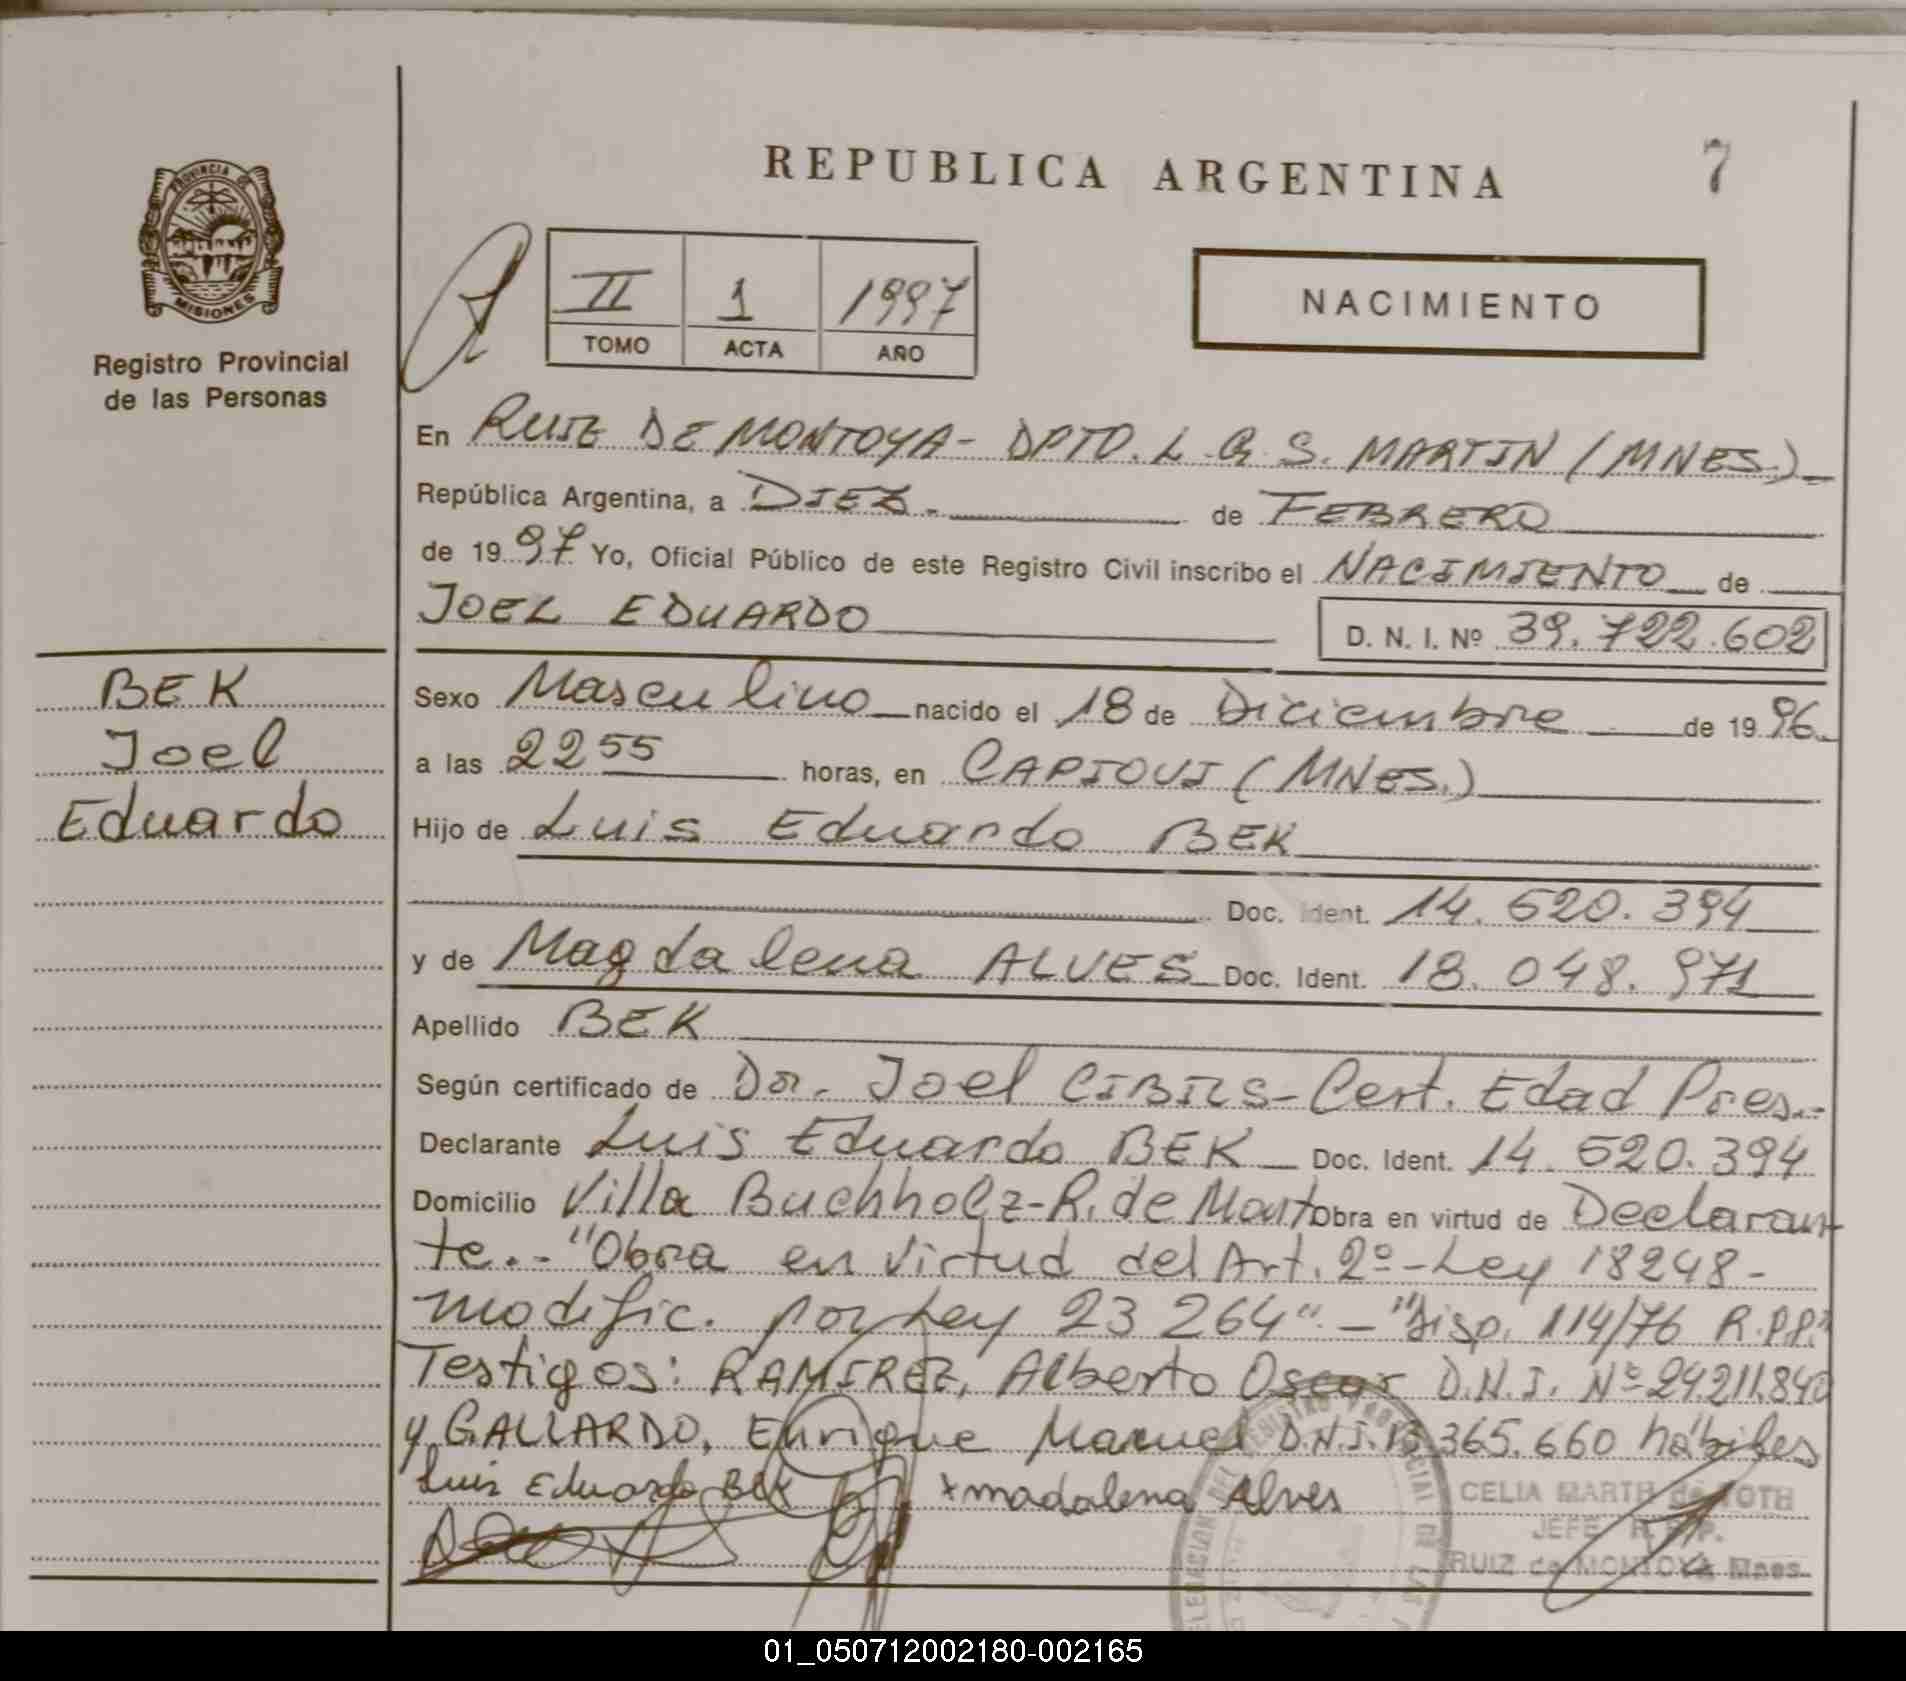 REPUBLICA ARGENTINA
7
PROVINCIA DE
MISIONES
Registro Provincial
de las Personas
II 1 1997
TOMO ACTA AÑO
NACIMIENTO
En RUIZ DE MONTOYA - DPTO. L. G. S. MARTIN (MNES.)
República Argentina, a DIEZ.- de FEBRERO
de 1997 Yo, Oficial Público de este Registro Civil inscribo el NACIMIENTO de
JOEL EDUARDO D. N. I. Nº 39.722.602
BEK
Joel
Eduardo
Sexo Masculino nacido el 18 de Diciembre de 1996.
a las 22 55 horas, en CAPIOVI (MNES.)
Hijo de Luis Eduardo BEK
Doc. Ident. 14.620.394
y de Magdalena ALVES Doc. Ident. 18.048.971
Apellido BEK
Según certificado de Dr. Joel CIBILS - Cert. Edad Pres.-
Declarante Luis Eduardo BEK Doc. Ident. 14.620.394
Domicilio Villa Buchholz - R. de Mont Obra en virtud de Declaran-
te.- "Obra en virtud del Art. 2º - Ley 18248 -
modific. por Ley 23 264". - "Disp. 114/76 R.P.P."
Testigos: RAMIREZ, Alberto Oscar D.N.I. Nº 24.211.840
y GALLARDO, Enrique Manuel D.N.I. 365.660 hábiles
Luis Eduardo BEK + madalena Alves
CELIA MARTH de TOTH
JEFE R.P.P.
RUIZ de MONTOYA Mnes.
01_050712002180-002165